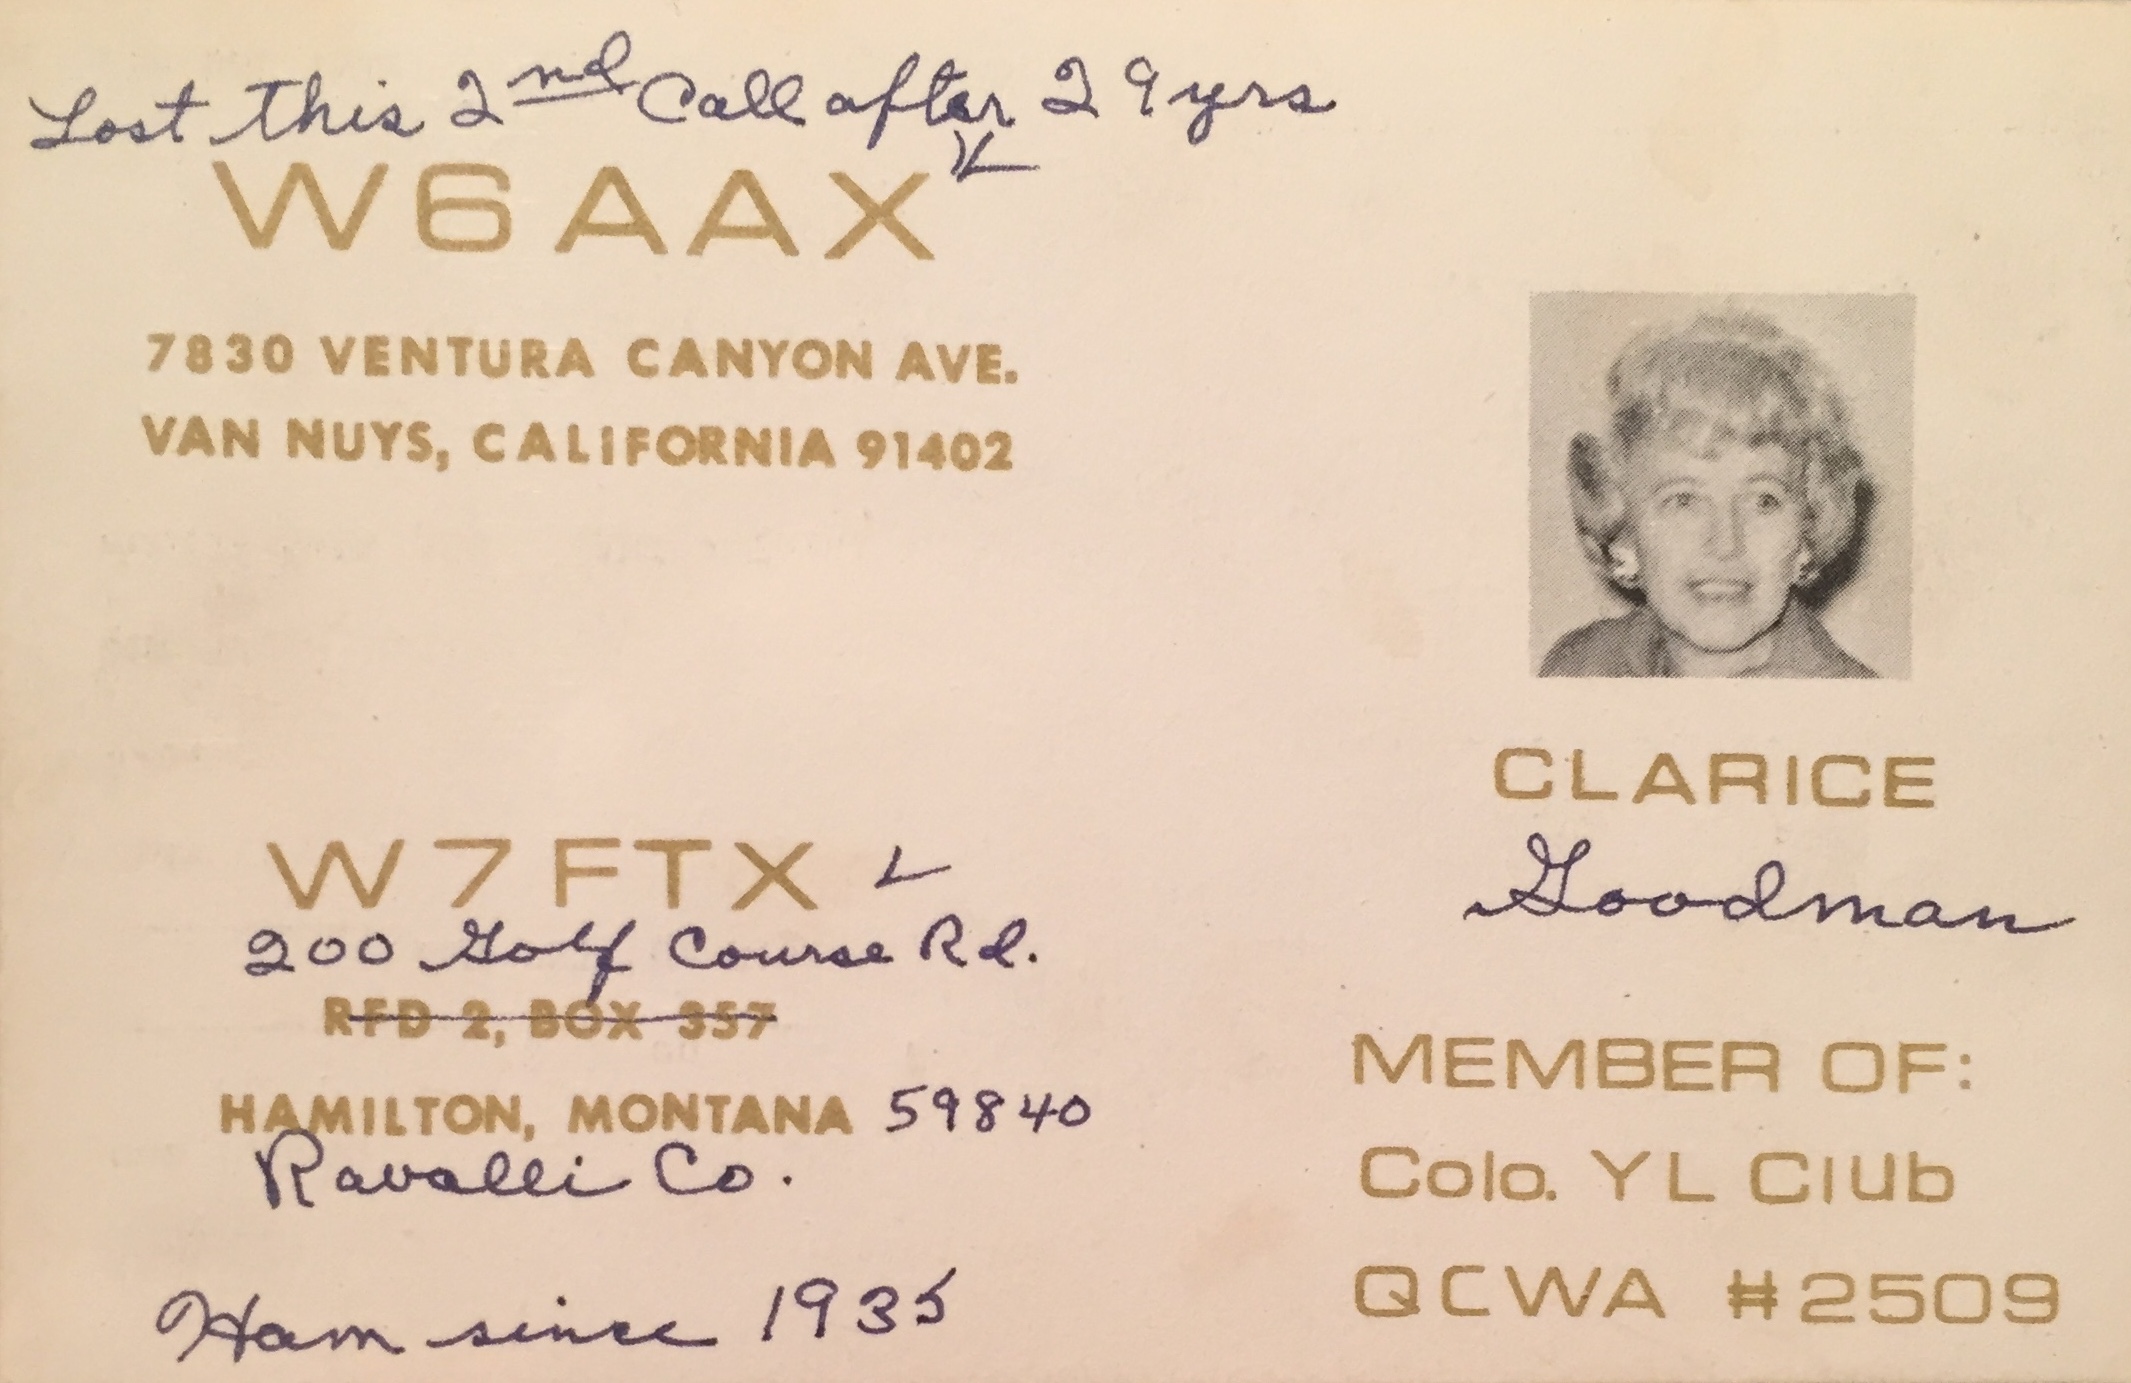 Lost this 2nd Call after 29 yrs
W6AAX
7830 VENTURA CANYON AVE.
VAN NUYS, CALIFORNIA 91402
W7FTX
200 Golf Course Rd.
RFD 2, BOX 357
HAMILTON, MONTANA 59840
Ravalli Co.
Ham since 1935
CLARICE
Goodman
MEMBER OF:
Colo. YL Club
QCWA #2509